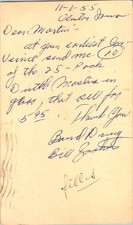 11-1-55
Iowa
Dear Martin:
at your earliest Con-
send me (10)
of the 25¢ Pack
Dutch Masters in
glass, that sell for
5.95. Thank You
Drug
Bill
filled